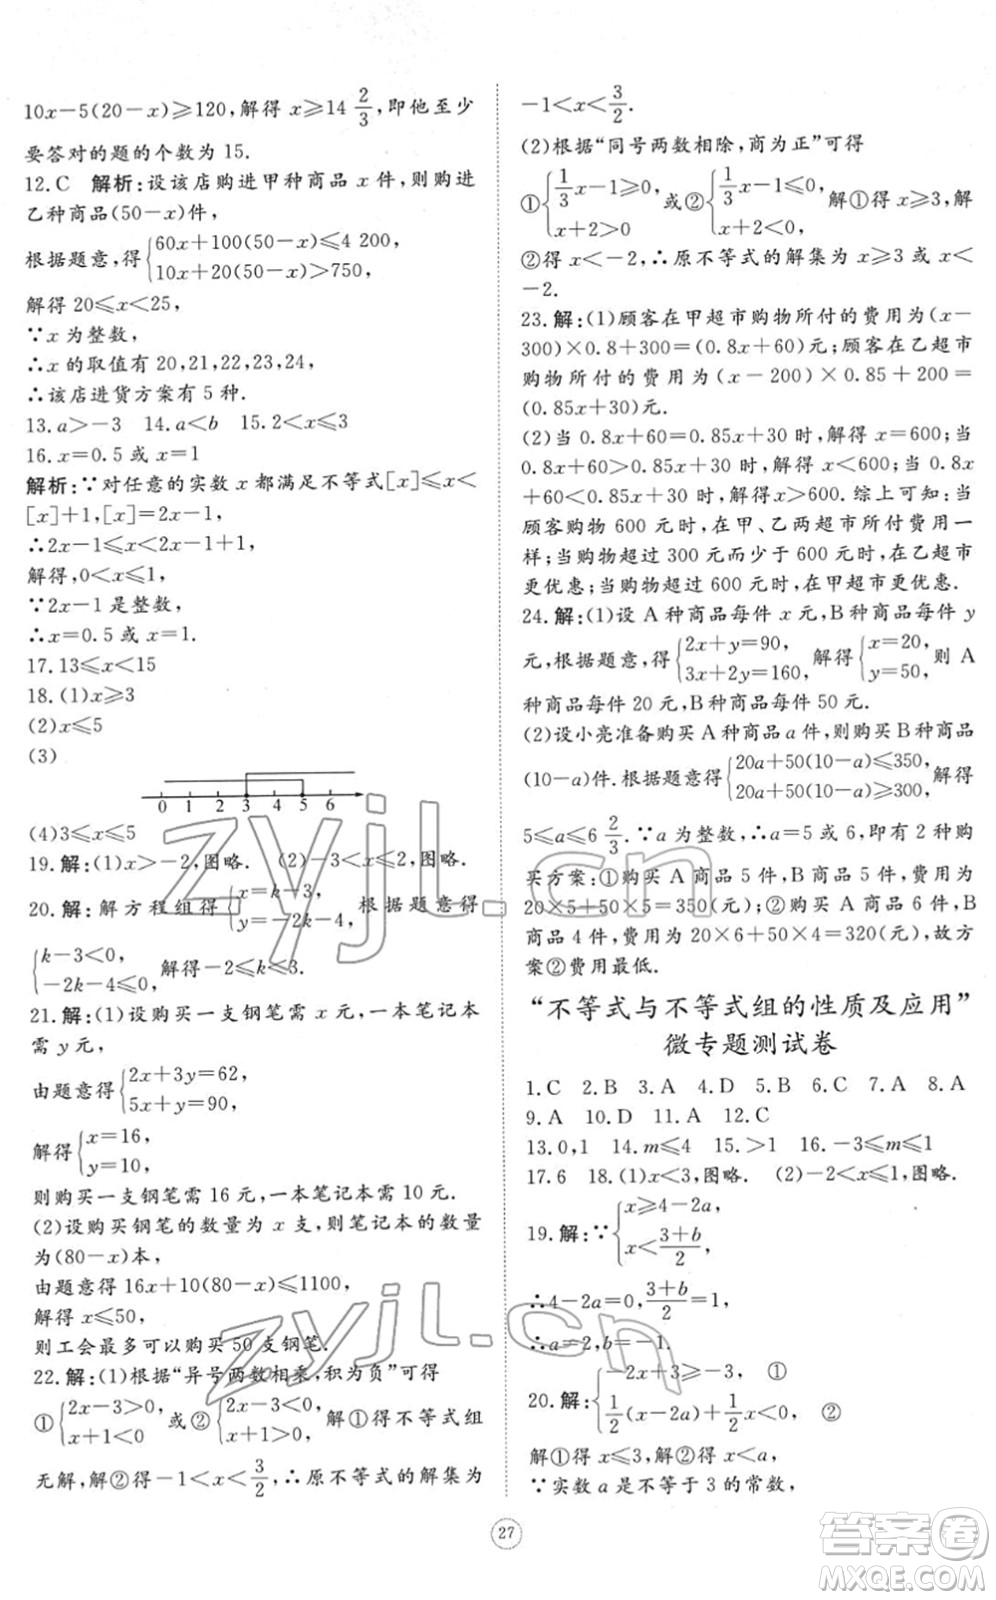 10x－5(20－x)≥120,解得 x≥14 2/3,即他至少
要答对的题的个数为 15.
12.C 解析:设该店购进甲种商品 x 件,则购进
乙种商品(50－x)件,
根据题意,得{60x＋100(50－x)≤4 200,
10x＋20(50－x)＞750,
解得 20≤x＜25,
∵x 为整数,
∴x 的取值有 20,21,22,23,24,
∴该店进货方案有 5 种.
13.a＞－3 14.a＜b 15.2＜x≤3
16.x＝0.5 或 x＝1
解析:∵对任意的实数 x 都满足不等式[x]≤x＜
[x]＋1,[x]＝2x－1,
∴2x－1≤x＜2x－1＋1,
解得,0＜x≤1,
∵2x－1 是整数,
∴x＝0.5 或 x＝1.
17.13≤x＜15
18.(1)x≥3
(2)x≤5
(3)
0 1 2 3 4 5 6
(4)3≤x≤5
19.解:(1)x＞－2,图略. (2)－3＜x≤2,图略.
20.解:解方程组得{x＝k－3,
y＝－2k－4, 根据题意得
{k－3＜0,
－2k－4≤0, 解得－2≤k＜3.
21.解:(1)设购买一支钢笔需 x 元,一本笔记本
需 y 元,
由题意得{2x＋3y＝62,
5x＋y＝90,
解得{x＝16,
y＝10,
则购买一支钢笔需 16 元,一本笔记本需 10 元.
(2)设购买钢笔的数量为 x 支,则笔记本的数量
为(80－x)本,
由题意得 16x＋10(80－x)≤1100,
解得 x≤50,
则工会最多可以购买 50 支钢笔.
22.解:(1)根据“异号两数相乘,积为负”可得
①{2x－3＞0,
x＋1＜0 或②{2x－3＜0,
x＋1＞0, 解①得不等式组
无解,解②得－1＜x＜3/2,∴原不等式的解集为
－1＜x＜3/2.
(2)根据“同号两数相除,商为正”可得
①{1/3x－1≥0,
x＋2＞0 或②{1/3x－1≤0,
x＋2＜0, 解①得 x≥3,解
②得 x＜－2,∴原不等式的解集为 x≥3 或 x＜
－2.
23.解:(1)顾客在甲超市购物所付的费用为(x－
300)×0.8＋300＝(0.8x＋60)元;顾客在乙超市
购物所付的费用为(x－200)×0.85＋200＝
(0.85x＋30)元.
(2)当 0.8x＋60＝0.85x＋30 时,解得 x＝600;当
0.8x＋60＞0.85x＋30 时,解得 x＜600;当 0.8x
＋60＜0.85x＋30 时,解得 x＞600.综上可知:当
顾客购物 600 元时,在甲、乙两超市所付费用一
样;当购物超过 300 元而少于 600 元时,在乙超市
更优惠;当购物超过 600 元时,在甲超市更优惠.
24.解:(1)设 A 种商品每件 x 元,B种商品每件 y
元,根据题意,得{2x＋y＝90,
3x＋2y＝160, 解得{x＝20,
y＝50, 则 A
种商品每件 20 元,B种商品每件 50 元.
(2)设小亮准备购买 A 种商品 a 件,则购买 B 种商品
(10－a)件.根据题意得{20a＋50(10－a)≤350,
20a＋50(10－a)≥300, 解得
5≤a≤6 2/3.∵a 为整数,∴a＝5或6,即有 2 种购
买方案:①购买 A 商品 5 件,B 商品 5 件,费用为
20×5＋50×5＝350(元);②购买 A 商品 6 件,B
商品 4 件,费用为 20×6＋50×4＝320(元),故方
案②费用最低.
“不等式与不等式组的性质及应用”
微专题测试卷
1.C 2.B 3.A 4.D 5.B 6.C 7.A 8.A
9.A 10.D 11.A 12.C
13.0,1 14.m≤4 15.＞1 16.－3≤m≤1
17.6 18.(1)x＜3,图略. (2)－2＜x≤1,图略.
19.解:∵{x≥4－2a,
x＜(3＋b)/2,
∴4－2a＝0,(3＋b)/2＝1,
∴a＝2,b＝－1.
20.解:{－2x＋3≥－3, ①
1/2(x－2a)＋1/2x＜0, ②
解①得 x≤3,解②得 x＜a,
∵实数 a 是不等于 3 的常数,
27
zyjl.cn
zyjl.cn
答案圈
MXQE.COM